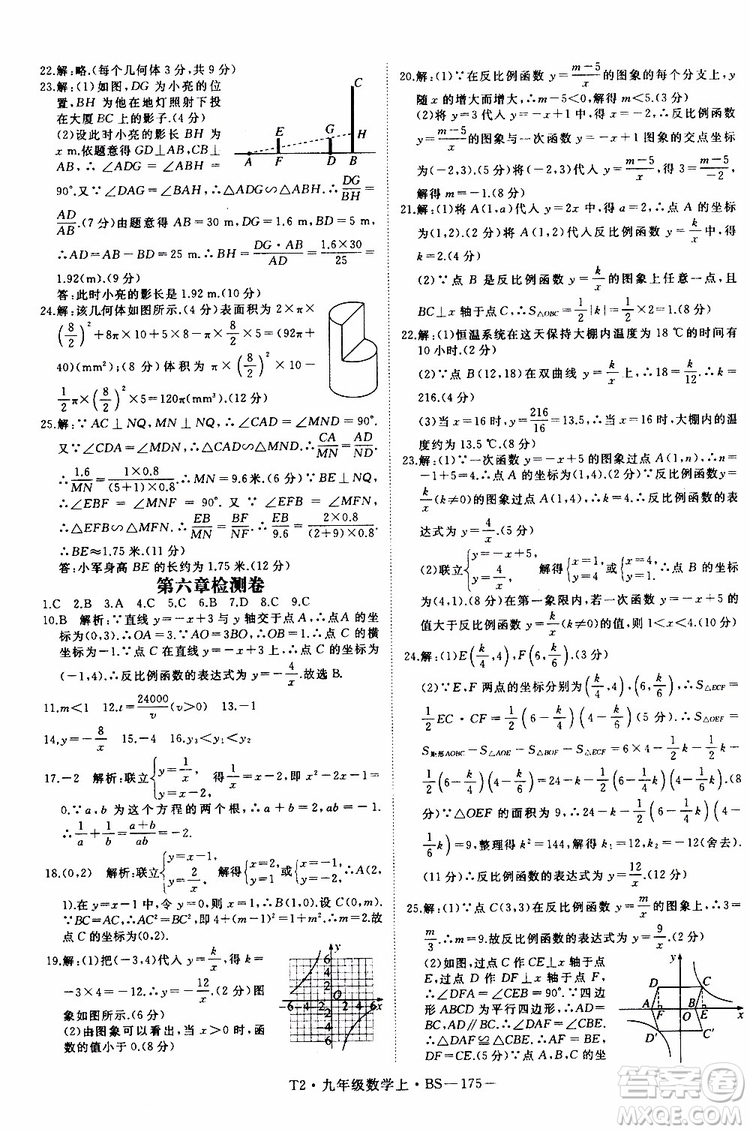 22.解:略.(每个几何体3分,共9分)
23.解:(1)如图,GD为小亮的位
置,BH为他在地灯照射下投
在大厦BC上的影子.(4分)
(2)设此时小亮的影长BH为
x m.依题意得GD⊥AB,CB⊥
AB,∴∠ADG=∠ABH=
90°.又∵∠DAG=∠BAH,∴△ADG∽△ABH,∴DG/BH=
AD/AB.(7分)由题意得DG=1.6 m,AB=30 m,BD=5 m,
∴AD=AB-BD=25 m.∴BH=DG·AB/AD=1.6×30/25=
1.92(m).(9分)
答:此时小亮的影长为1.92 m.(10分)
24.解:该几何体如图所示.(4分)表面积为2×π×
(8/2)²+8π×10+1/2×8π×5+8×5=(92π+
40)(mm²).(8分)体积为π×(8/2)²×10+
1/2×π×(8/2)²×5=200π(mm³).(12分)
25.解:∵AC⊥NQ,MN⊥NQ,∴∠CAD=∠MND=90°.
又∵∠CDA=∠MDN,∴△CAD∽△MND,∴CA/MN=AD/ND,
∴1.6/MN=1×0.8/(5+1)×0.8,∴MN=9.6米.(6分)∵BE⊥NQ,
∴∠EBF=∠MNF=90°.又∵∠EFB=∠MFN,
∴△EFB∽△MFN,∴EB/MN=BF/NF,∴EB/9.6=2×0.8/(2+9)×0.8,
∴BE≈1.75米.(12分)
答:小军身高BE的长约为1.75米.(12分)
第六章检测卷
1.C 2.B 3.A 4.C 5.A 6.D 7.C 8.D 9.D
10.B 解析:∵直线y=-x+3与y轴交于点A,∴点A的坐
标为(0,3),∴OA=3.∵AO=3BO,∴OB=1,∴点C的横
坐标为-1.∵点C在直线y=-x+3上,∴点C的坐标
为(-1,4).∴反比例函数的表达式为y=-4/x.故选B.
11.m<1 12.t=24000/v(v>0) 13.-1
14.y=-8/x 15.-4 16.24
17.-2 解析:联立{y=1/x, y=x-2,
0.∵a,b为这个方程的两个根,∴a+b=2,ab=-1.
∴1/a+1/b=(a+b)/ab=-2.
18.(0,2) 解析:联立{y=x-1, y=2/x,解得{x=2, y=1或{x=-1, y=-2.∴A(2,
1).在y=x-1中,令y=0,得x=1,∴B(1,0).设点C
的坐标为(0,b).∵AC=BC,∴4+(1-b)²=1+b²,解得b=2.∴
点C的坐标为(0,2).
19.解:(1)把(-3,4)代入y=k/x,得k=
-3×4=-12,∴y=-12/x.(3分)作
图如图所示.(6分)
(2)由图象可以看出,当x>0时,函
数的值小于0.(8分)
20.解:(1)∵在反比例函数y=(m-5)/x的图象的每个分支上,y
随x的增大而增大,∴m-5<0,解得m<5.(3分)
(2)将y=3代入y=-x+1中,得x=-2,∴反比例函数
y=(m-5)/x的图象与一次函数y=-x+1的图象的交点坐标
为(-2,3).(6分)将(-2,3)代入y=(m-5)/x,得3=(m-5)/-2,
解得m=-1.(8分)
21.解:(1)将A(1,a)代入y=2x中,得a=2,∴点A的坐标
为(1,2).(2分)将A(1,2)代入y=k/x中,得k=2,∴y=
2/x.(4分)
(2)∵点B是反比例函数y=k/x的图象上一点,且
BC⊥x轴于点C,∴S△OBC=1/2|k|=1/2×2=1.(8分)
22.解:(1)恒温系统在这天保持大棚内温度为18 ℃的时间有
10小时.(2分)
(2)∵点B(12,18)在双曲线y=k/x上,∴18=k/12,∴k=
216.(5分)
(3)当x=16时,y=216/16=13.5,∴当x=16时,大棚内的温
度约为13.5 ℃.(8分)
23.解:(1)∵一次函数y=-x+5的图象过点A(1,n),∴n=
-1+5=4,∴点A的坐标为(1,4).(2分)∵反比例函数y=
k/x(k≠0)的图象过点A(1,4),∴k=4.∴反比例函数的表
达式为y=4/x.(5分)
(2)联立{y=-x+5, y=4/x,解得{x=1, y=4或{x=4, y=1,∴点B的坐标为
(4,1).(8分)∵在第一象限内,若一次函数y=-x+5的
值大于反比例函数y=k/x(k≠0)的值,则1<x<4.(10分)
24.解:(1)E(k/4,4),F(6,k/6).(3分)
(2)∵E,F两点的坐标分别为(k/4,4),(6,k/6),∴S△ECF=
1/2EC·CF=1/2(6-k/4)(4-k/6).(5分)∴S△EOF=
S矩形AOBC-S△AOE-S△BOF-S△ECF=6×4-1/2k-1/2k-
1/2(6-k/4)(4-k/6)=24-k-1/2(6-k/4)(4-k/6).(8
分)∵△OEF的面积为9,∴24-k-1/2(6-k/4)·
(4-k/6)=9,整理得k²/48=3,解得k=12或k=-12(舍去).
(11分)∴反比例函数的表达式为y=12/x.(12分)
25.解:(1)∵点C(3,3)在反比例函数y=m/x的图象上,∴3=
m/3,∴m=9.∴反比例函数的表达式为y=9/x.(2分)
(2)如图,过点C作CE⊥x轴于点E,
过点D作DF⊥x轴于点F,
∴∠DFA=∠CEB=90°.∵四边
形ABCD为平行四边形,∴AD=
BC,AD∥BC,∴∠DAF=∠CBE,
∴△DAF≌△CBE,∴AF=BE,
T2·九年级数学上·BS—175—
答案圈
MXQE.COM